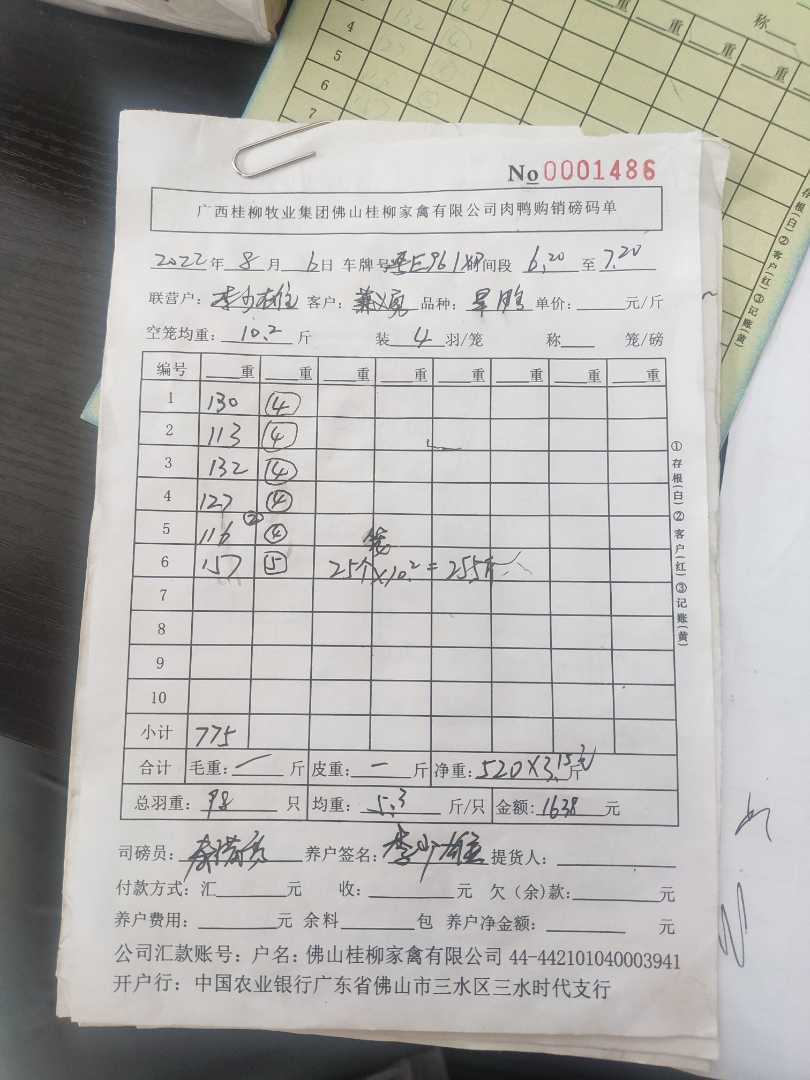 称
重 重 重 重
4 132 ④
5 123
6
7
存根(白)②客户(红)③记账(黄)
No 0001486
广西桂柳牧业集团佛山桂柳家禽有限公司肉鸭购销磅码单
2022年8月6日 车牌号 粤E961X 时间段 6.20 至 7.20
联营户: 客户: 品种: 单价: 元/斤
空笼均重: 10.2 斤 装 4 羽/笼 称 笼/磅
编号 重 重 重 重 重 重 重 重
1 130 ④
2 113 ④
3 132 ④
4 127 ④
5 116 ④
笼
6 157 5 25个×10.2=255斤
7
8
9
10
小计 775
合计 毛重: 斤 皮重: 斤 净重: 520×3.15元 斤
总羽重: 98 只 均重: 5.3 斤/只 金额: 1638 元
司磅员: 养户签名: 提货人:
付款方式: 汇 元 收: 元 欠(余)款: 元
养户费用: 元 余料 包 养户净金额: 元
公司汇款账号: 户名: 佛山桂柳家禽有限公司 44-442101040003941
开户行: 中国农业银行广东省佛山市三水区三水时代支行
①存根(白)②客户(红)③记账(黄)